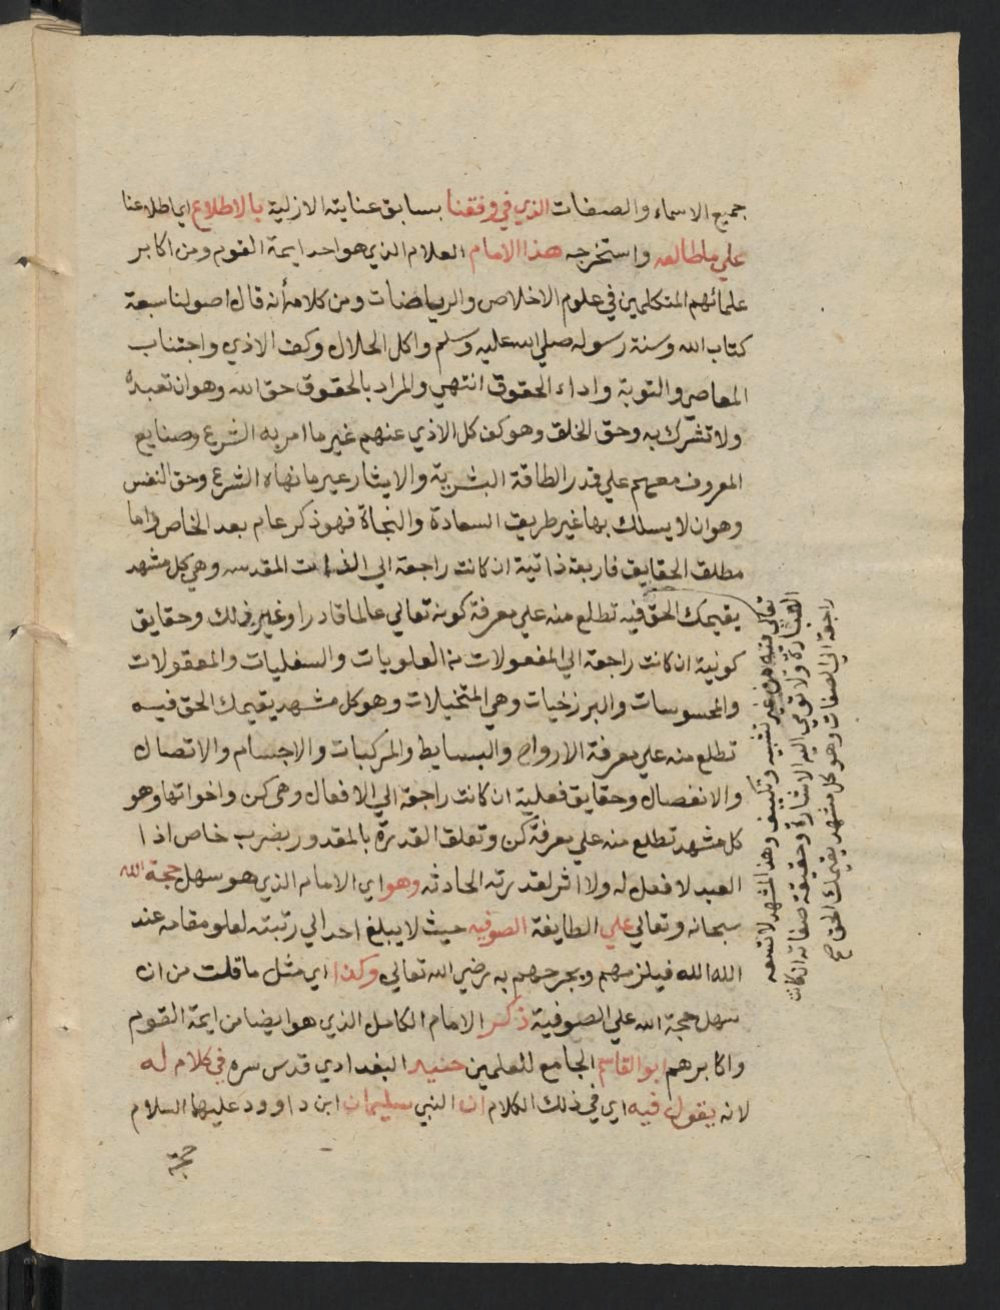 جميع الاسماء والصفات الذي في وفقنا بسابق عنايته الازلية بالاطلاع اي اطلاعنا
علي ماطالعه واستخرجه هذا الامام العلام الذي هو احد ايمة القوم ومن اكابر
علمائهم المتكلمين في علوم الاخلاص والرياضات ومن كلامه أنه قال اصولنا سبعة
كتاب الله وسنة رسوله صلي الله عليه وسلم واكل الحلال وكف الاذي واجتناب
المعاصي والتوبة واداء الحقوق انتهي والمراد بالحقوق حق الله وهو ان تعبده
ولا تشرك به وحق الخلق وهو كف كل الاذي عنهم غير ما امر به الشرع وصنايع
المعروف معهم علي قدر الطاقة البشرية والايثار غير ما نهاه الشرع وحق النفس
وهو ان لا يسلك بها غير طريق السعادة والنجاة فهو ذكر عام بعد الخاص واما
مطلق الحقايق فاربعة ذاتية ان كانت راجعة الي الذات المقدسه وهي كل مشهد
يقيمك الحق فيه تطلع منه علي معرفة كونه تعالي عالما قادرا وغير ذلك وحقايق
كونية ان كانت راجعة الي المفعولات من العلويات والسفليات والمعقولات
والمحسوسات والبرزخيات وهي المتخيلات وهو كل مشهد يقيمك الحق فيه
تطلع منه علي معرفة الارواح والبسايط والمركبات والاجسام والاتصال
والانفصال وحقايق فعلية ان كانت راجعة الي الافعال وهي كن واخواتها وهو
كل مشهد تطلع منه علي معرفة كن وتعلق القدرة بالمقدور بضرب خاص اذا
العبد لا فعل له ولا اثر لقدرته الحادثه وهو اي الامام الذي هو سهل حجة الله
سبحانه وتعالي علي الطايفة الصوفيه حيث لا يبلغ احد الي رتبته لعلو مقامه عند
الله الله فيلزمهم ويجرحهم به رضي الله تعالي وكذا اي مثل ما قلت من ان
سهل حجة الله علي الصوفية ذكر الامام الكامل الذي هو ايضا من ايمة القوم
واكابرهم ابو القاسم الجامع للعلمين جنيد البغدادي قدس سره في كلام له
لانه يقول فيه اي في ذلك الكلام ان النبي سليمان ابن داوود عليهما السلام
حجة
تعالي فيه من غير تشبيه وتكييف وهذا المشهد لا تسعه
العبارة ولا تومي اليه الاشارة وحقيقة صفاته ان كانت
راجعة الي الصفات وهو كل مشهد يقيمك الحق صح